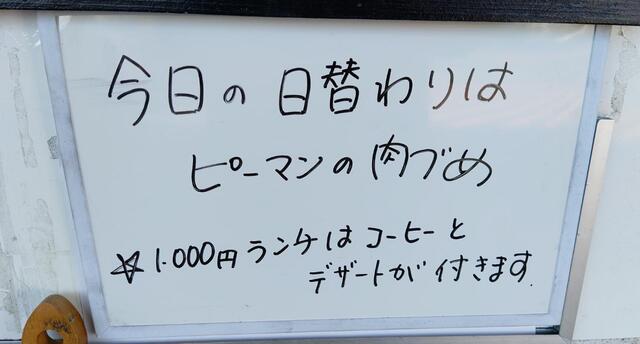 今日の日替わりは
ピーマンの肉づめ
☆1.000円ランチはコーヒーと
デザートが付きます.